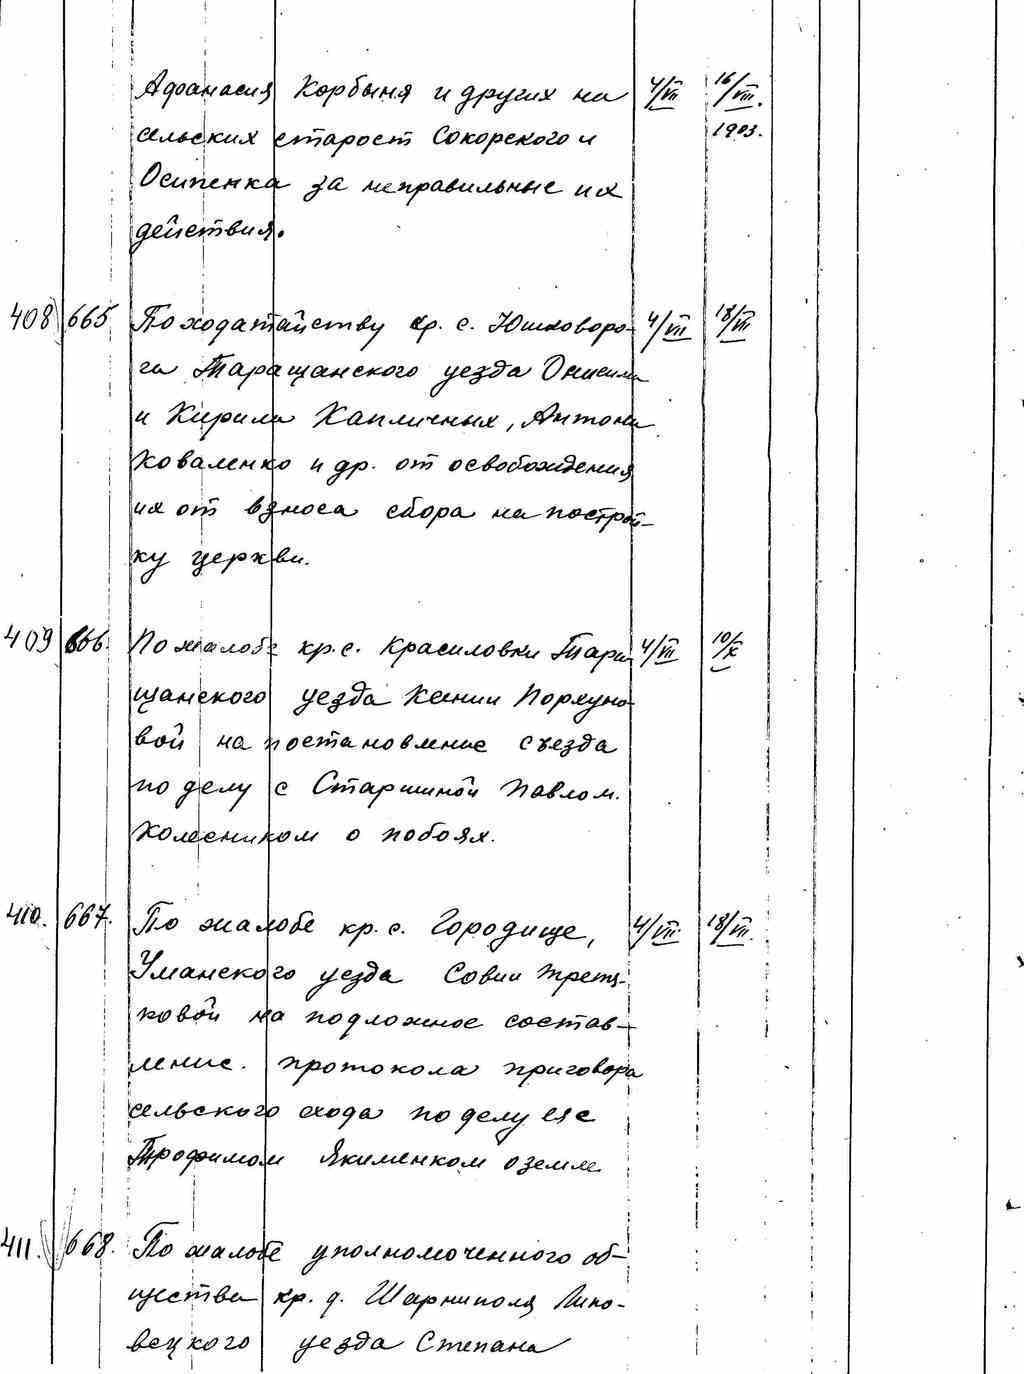 Афанасия Корбыня и других на 4/VII 16/VIII.
сельских старост Сокорского и 1903.
Осипенка за неправильные их
действия.
408 665 По ходатайству кр. с. Юшковоро- 4/VII 18/VII
га Таращанского уезда Онисима
и Кирила Капличных, Антона
Коваленко и др. от освобождения
их от взноса сбора на построй-
ку церкви.
409 666. По жалобе кр. с. Красиловки Тара- 4/VII 10/X
щанского уезда Ксении
вой на постановление съезда
по делу с Старшиной Павлом.
Колесником о побоях.
410. 667. По жалобе кр. с. Городище, 4/VII. 18/VII.
Уманского уезда Совии Третя-
ковой на подложное состав-
ление. протокола приговора
сельского схода по делу ея с
Трофимом Якименком о земле
411. 668. По жалобе уполномоченного об-
щества кр. д. Шарниполя Липо-
вецкого уезда Степана